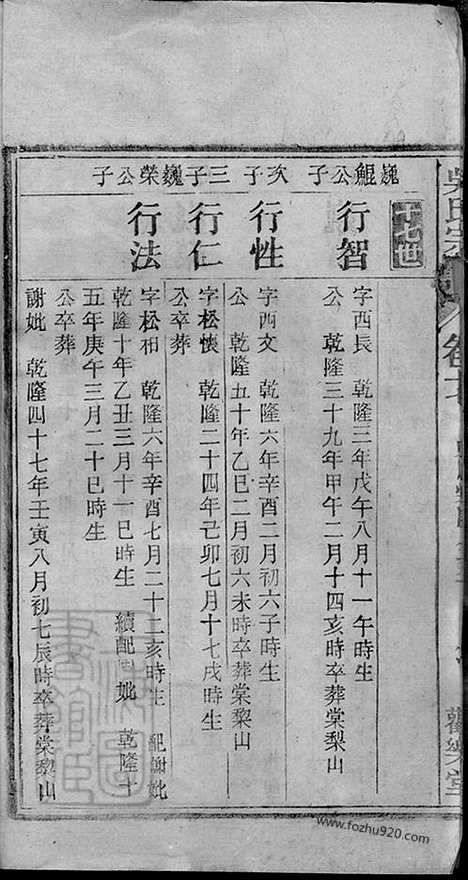 吳氏宗
卷十七
觀樂堂
十七世
巍鯤公子
行智
字西辰 乾隆三年戊午八月十一午時生
公 乾隆三十九年甲午二月十四亥時卒葬棠梨山
次子
行性
字西文 乾隆六年辛酉二月初六子時生
公 乾隆五十年乙巳二月初六未時卒葬棠黎山
三子
行仁
字松懷 乾隆二十四年己卯七月十七戌時生
公卒葬
巍榮公子
行法
字松和 乾隆六年辛酉七月二十二亥時生 配謝妣
乾隆十年乙丑三月十一巳時生 續配 妣 乾隆十
五年庚午三月二十巳時生
公卒葬
謝妣 乾隆四十七年壬寅八月初七辰時卒葬棠黎山
www.fozhu920.com